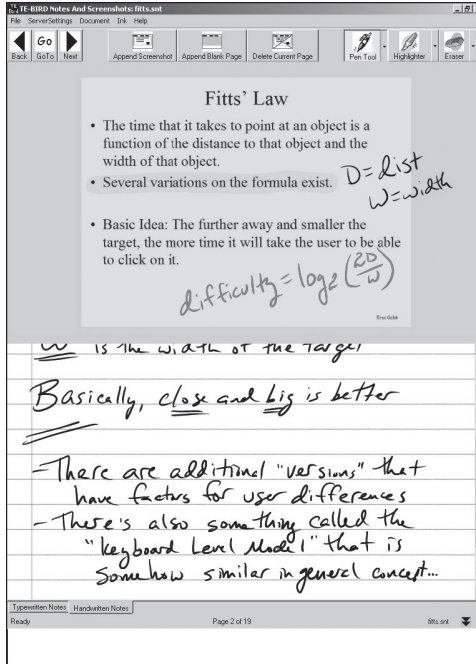 TE-BIRD Notes And Screenshots: fitts.snt
File ServerSettings Document Ink Help
Back GoTo Next Append Screenshot Append Blank Page Delete Current Page Pen Tool Highlighter Eraser
Go
Fitts' Law
• The time that it takes to point at an object is a
function of the distance to that object and the
width of that object.
• Several variations on the formula exist.
D=dist
W=width
• Basic Idea: The further away and smaller the
target, the more time it will take the user to be able
to click on it.
difficulty = log2 (2D/W)
Evan Golub
W is the width of the target
Basically, close and big is better
- There are additional "versions" that
have factors for user differences
- There's also something called the
"Keyboard Level Model" that is
somehow similar in general concept...
Typewritten Notes Handwritten Notes
Ready Page 2 of 19 fitts.snt